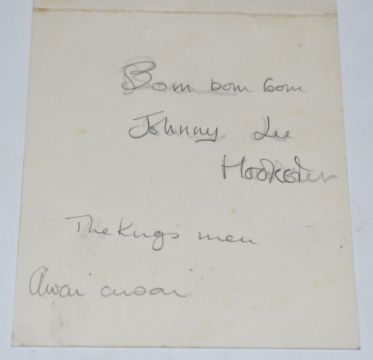 Bom bom bom
Johnny Lee
Hooker
The Kings men